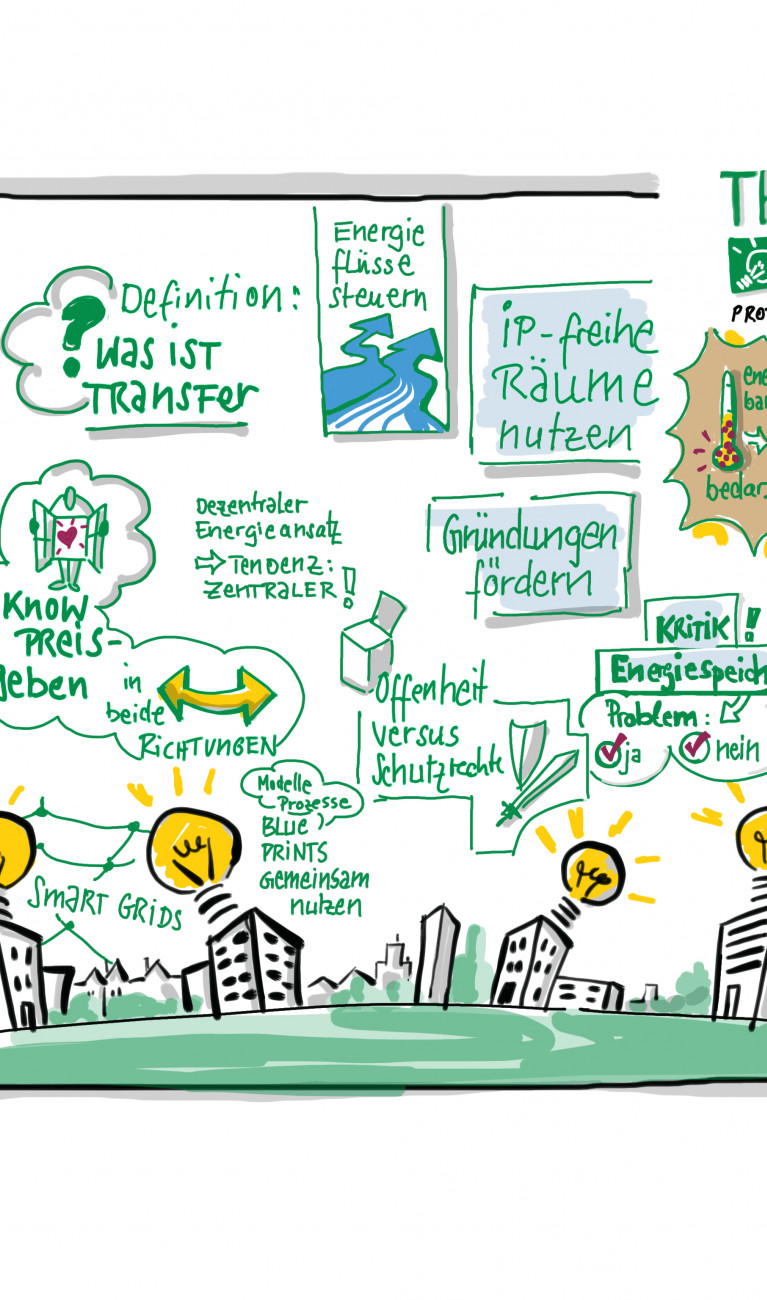 Definition:
Was ist
Transfer
Energie
flüsse
steuern
iP-freihe
Räume
nutzen
Dezentraler
Energieansatz
⇨ Tendenz:
Zentraler!
Gründungen
fördern
Know
Preis-
geben
in
beide
Richtungen
Offenheit
versus
Schutzrechte
Kritik!
Energiespeich
Problem:
ja
nein
Modelle
Prozesse
Blue
Prints
gemeinsam
nutzen
Smart Grids
Th
PRO
ene
ba
bedar